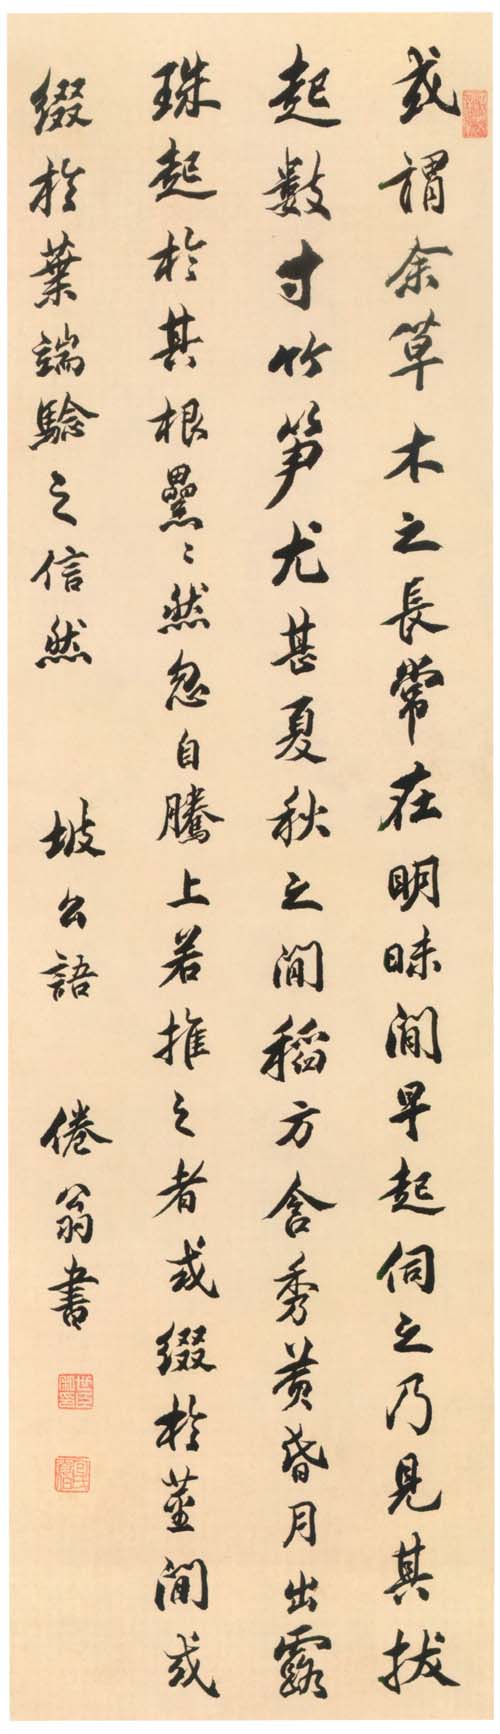 或謂余草木之長常在明昧間早起伺之乃見其拔
起數寸竹笋尤甚夏秋之間稻方含秀黃昏月出露
珠起於其根纍〻然忽自騰上若推之者或綴於莖間或
綴於葉端驗之信然　坡公語　倦翁書